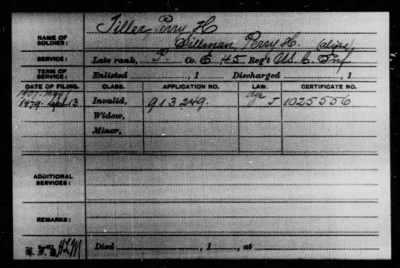 Tiller, Perry H
NAME OF SOLDIER:
Sillman, Perry H. (alias)
SERVICE: Late rank, P. Co. G 45 Reg't U.S.C. Inf
TERM OF SERVICE: Enlisted , 1 Discharged , 1
DATE OF FILING. CLASS. APPLICATION NO. LAW. CERTIFICATE NO.
1879. Sept 13 Invalid, 913249. J 1025556
Widow,
Minor,
ADDITIONAL SERVICES:
REMARKS:
Died , 1 , at